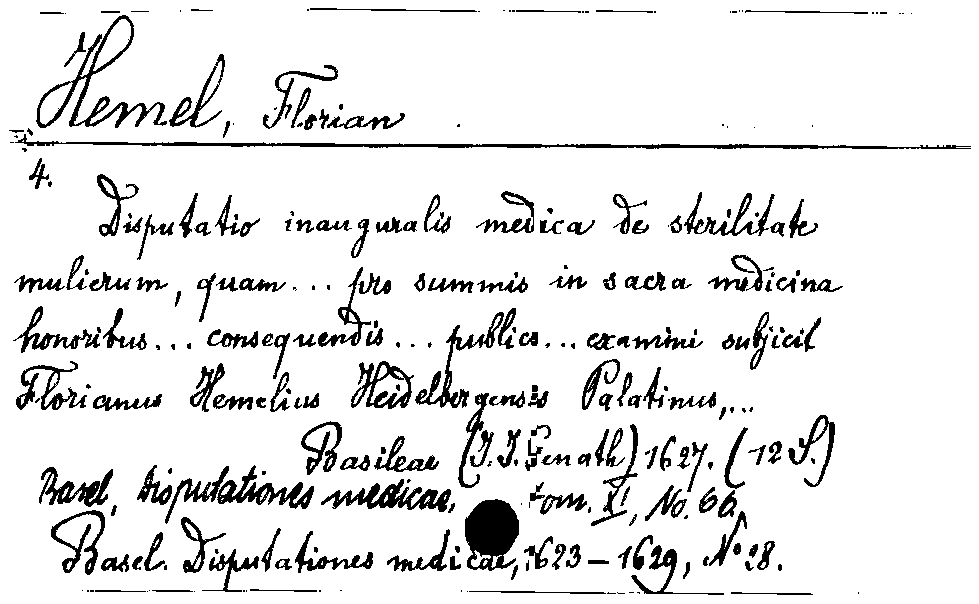 Hemel, Florian
4.
Disputatio inauguralis medica de sterilitate
mulierum, quam... pro summis in sacra medicina
honoribus... consequendis... publico... examini subjicit
Florianus Hemelius Heidelbergensis Palatinus,...
Basileae (J.J. Genath) 1627. (12 S.)
Basel, Disputationes medicae, tom. XI, No. 66.
Basel. Disputationes medicae, 1623-1629, No 28.